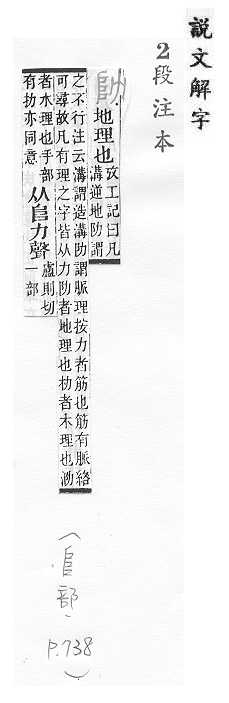 説文解字
2段注本
阞
地理也
攷工記曰凡
溝逆地阞謂
之不行注云溝謂造溝阞謂脈理按力者筋也筋有脈絡
可尋故凡有理之字皆从力阞者地理也朸者木理也泐
者水理也手部
有扐亦同意
从𨸏力聲
盧則切
一部
(𨸏部 P.738)